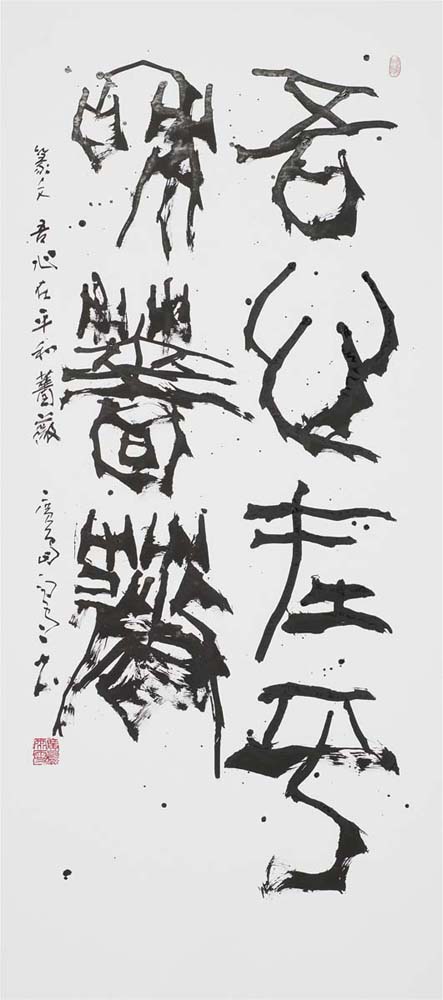 吾心在平
和薔薇
篆文 吾心在平和薔薇